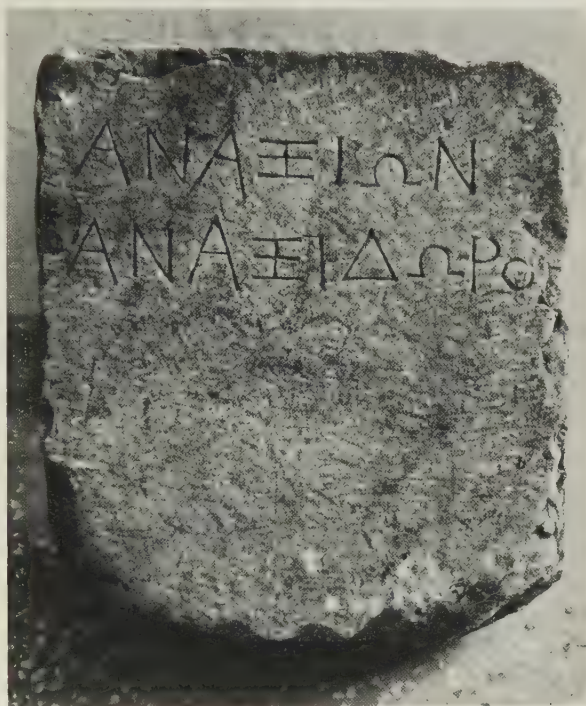 ΑΝΑΞΙΩΝ
ΑΝΑΞΙΔΩΡΟ